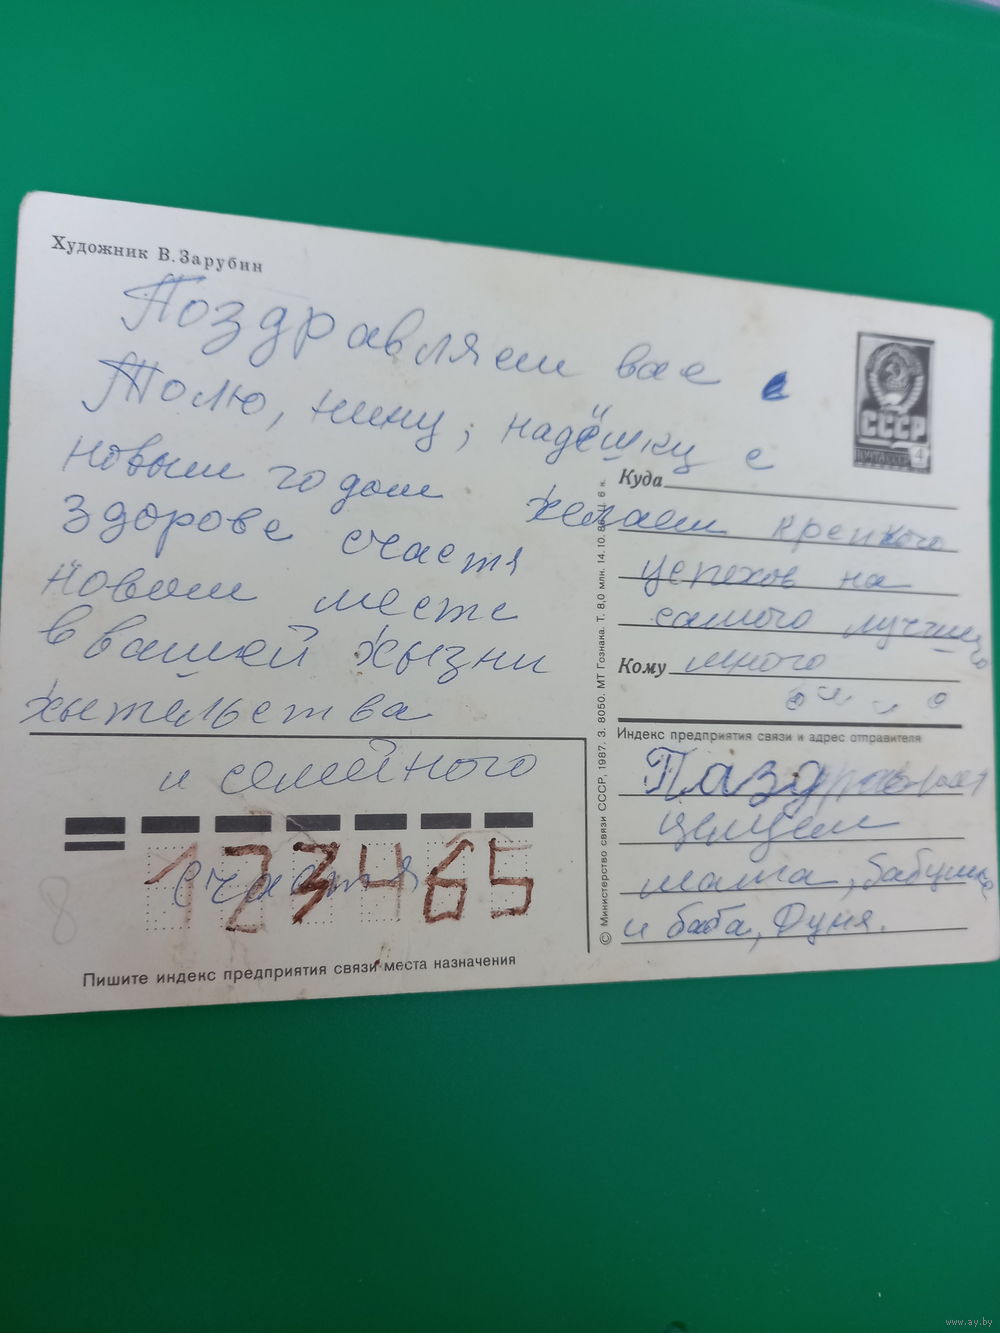 Художник В. Зарубин
Поздравляем вас с
Толю, нину, надёшку с
новым годом желаем крепкого
здорове счастя успехов на
новом месте самого лучшего
в вашей жызни много
жытельства
и семейного
счастя
СССР
ПОЧТА СССР 4
Куда
Кому
Индекс предприятия связи и адрес отправителя
целуем
мама, бабушка
и баба, Дуня.
123465
8
Пишите индекс предприятия связи места назначения
© Министерство связи СССР, 1987. З. 8050. МТ Гознака. Т. 8,0 млн. 14.10.86. Ц. 6 к.
www.ay.by